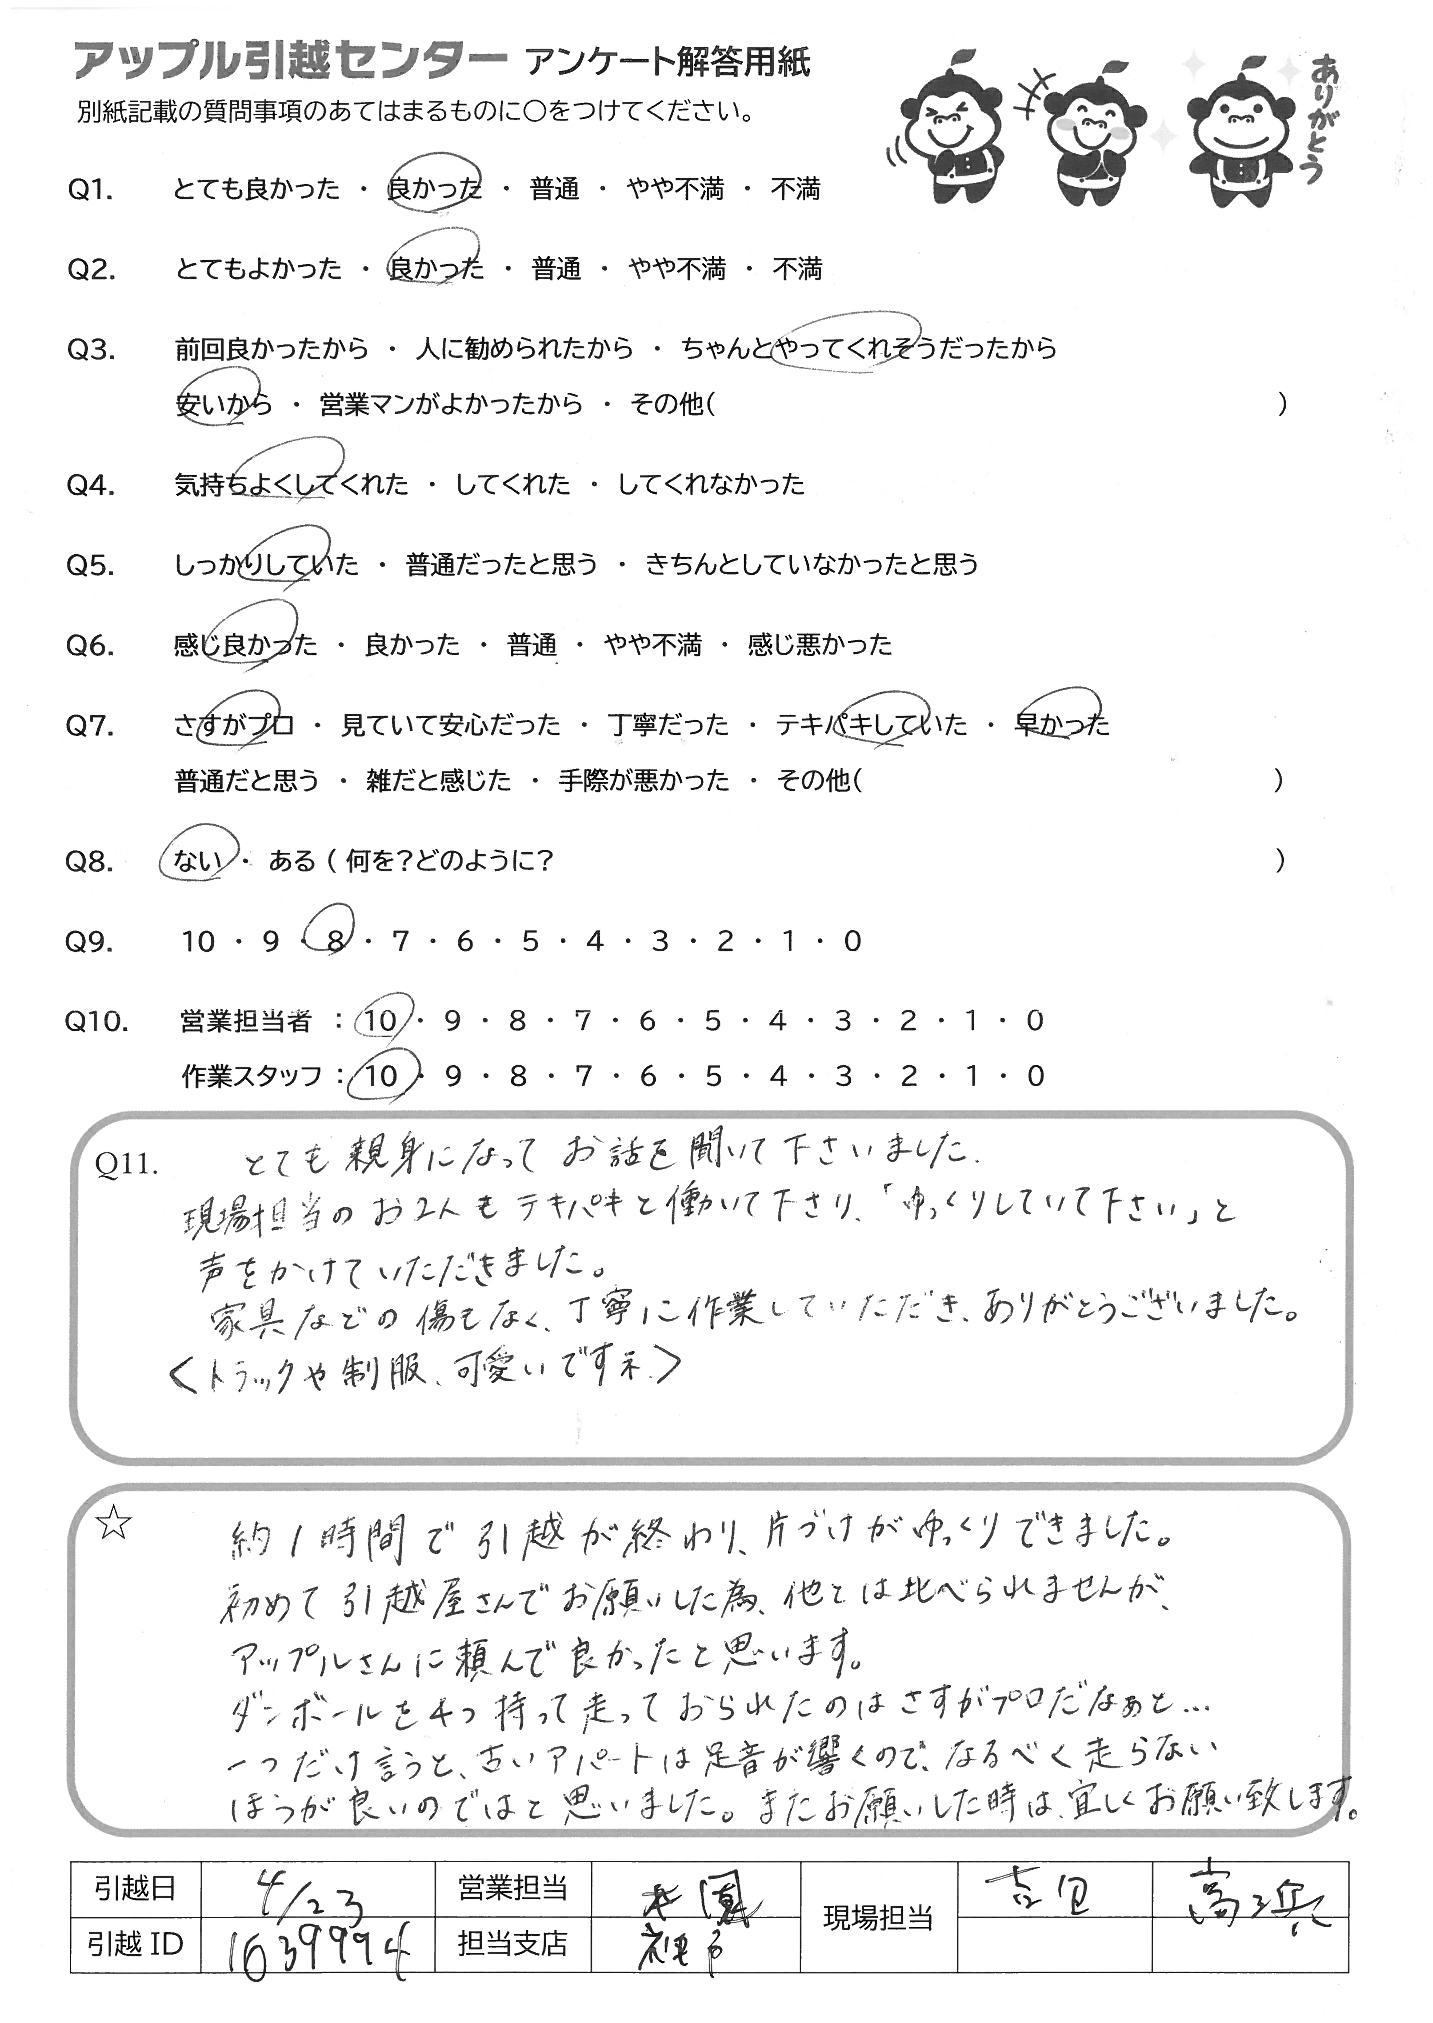 アップル引越センター アンケート解答用紙
別紙記載の質問事項のあてはまるものに○をつけてください。
ありがとう
Q1. とても良かった ・ 良かった ・ 普通 ・ やや不満 ・ 不満
Q2. とてもよかった ・ 良かった ・ 普通 ・ やや不満 ・ 不満
Q3. 前回良かったから ・ 人に勧められたから ・ ちゃんとやってくれそうだったから
安いから ・ 営業マンがよかったから ・ その他( )
Q4. 気持ちよくしてくれた ・ してくれた ・ してくれなかった
Q5. しっかりしていた ・ 普通だったと思う ・ きちんとしていなかったと思う
Q6. 感じ良かった ・ 良かった ・ 普通 ・ やや不満 ・ 感じ悪かった
Q7. さすがプロ ・ 見ていて安心だった ・ 丁寧だった ・ テキパキしていた ・ 早かった
普通だと思う ・ 雑だと感じた ・ 手際が悪かった ・ その他( )
Q8. ない ・ ある ( 何を?どのように? )
Q9. 10 ・ 9 ・ 8 ・ 7 ・ 6 ・ 5 ・ 4 ・ 3 ・ 2 ・ 1 ・ 0
Q10. 営業担当者 : 10 ・ 9 ・ 8 ・ 7 ・ 6 ・ 5 ・ 4 ・ 3 ・ 2 ・ 1 ・ 0
作業スタッフ : 10 ・ 9 ・ 8 ・ 7 ・ 6 ・ 5 ・ 4 ・ 3 ・ 2 ・ 1 ・ 0
Q11. とても親身になってお話を聞いて下さいました。
現場担当のお2人もテキパキと働いて下さり、「ゆっくりしていて下さい」と
声をかけていただきました。
家具などの傷もなく、丁寧に作業していただき、ありがとうございました。
<トラックや制服、可愛いですネ。>
☆ 約1時間で引越が終わり、片づけがゆっくりできました。
初めて引越屋さんでお願いした為、他とは比べられませんが、
アップルさんに頼んで良かったと思います。
ダンボールを4つ持って走っておられたのはさすがプロだなぁと…
一つだけ言うと、古いアパートは足音が響くので、なるべく走らない
ほうが良いのではと思いました。またお願いした時は、宜しくお願い致します。
引越日 4/23 営業担当 現場担当 高浜
引越ID 1639994 担当支店 神戸